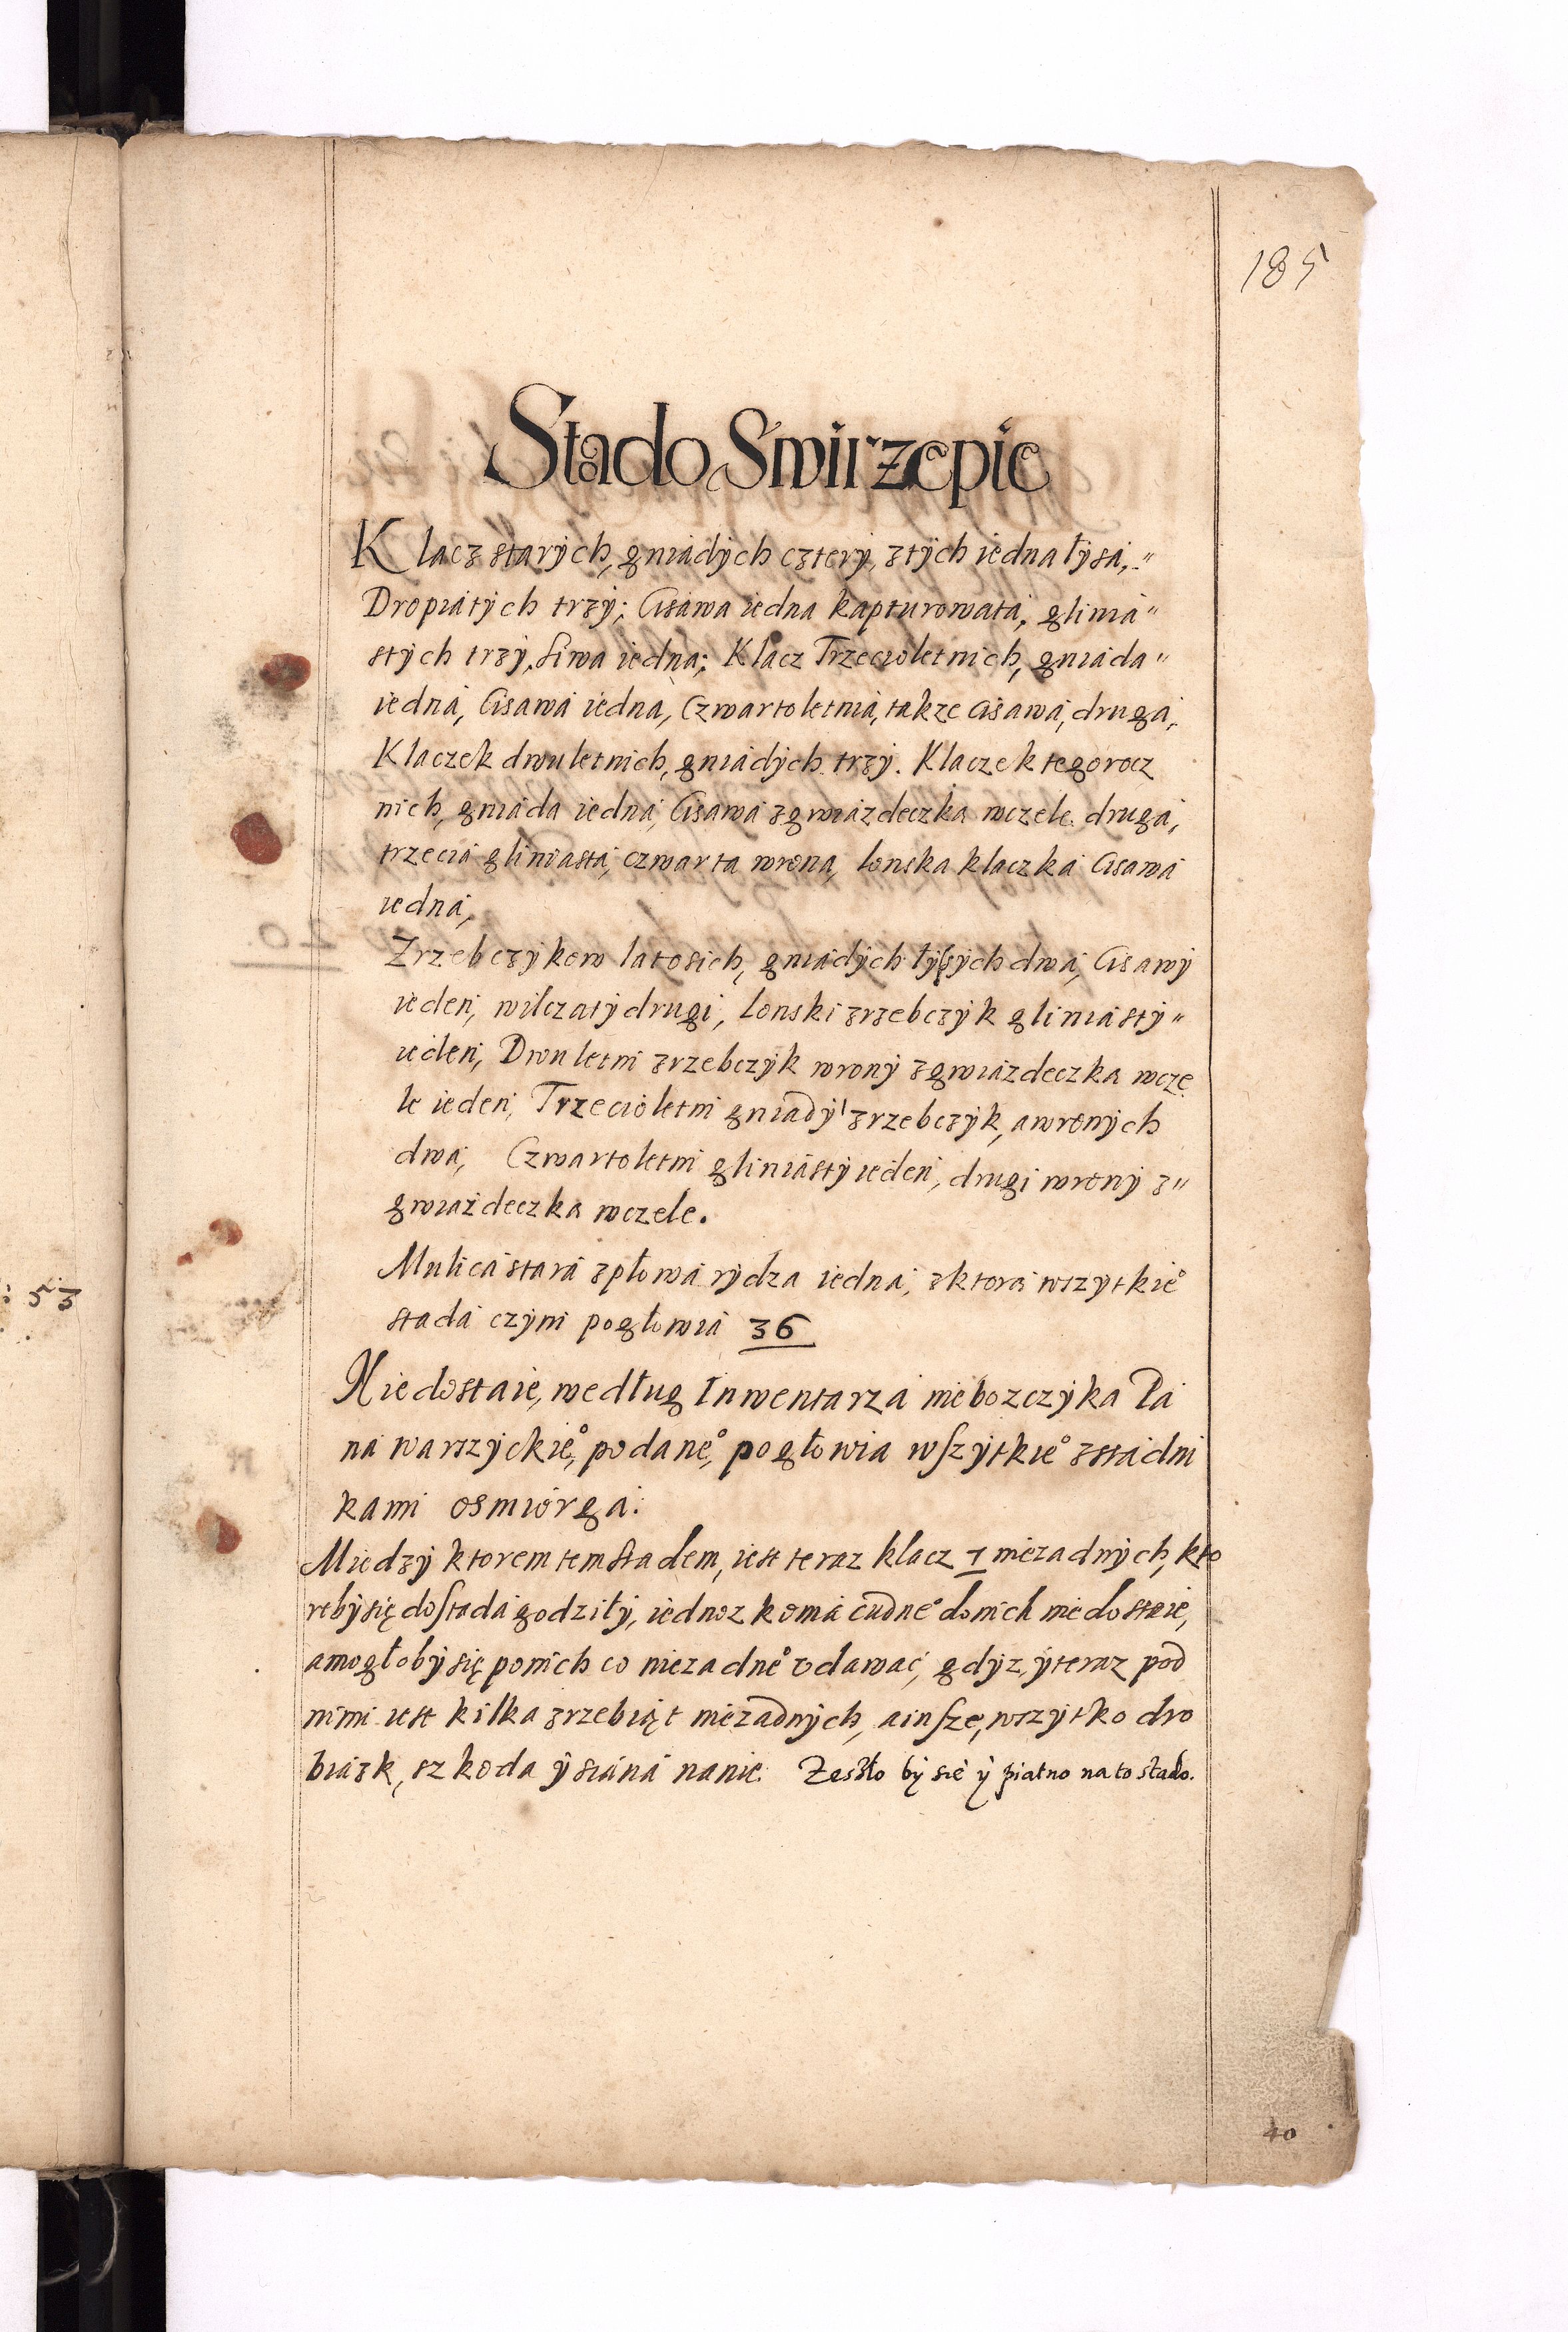 185
Stado Swirzepie
Klacz starých, gniadých cztery, ztých iedna łysá,"
Dropiatých trzy; Cisawa iedna kapturowatá, gliniá"
stých trzy, Siwa iedna; Klacz Trzecioletnich, gniáda"
iedná, Cisawá iedna, Czwartoletniá, takze Cisawá, drugá,
Klaczek dwuletnich, gniádých trzy. Klaczek tegorocz
nich, gniáda iedná, Cisawá zgwiazdeczka wczele drugá,
trzeciá gliniastá, czwarta wrona, lonska klaczká Cisawá
iedná,
Zrzebczykow latosich, gniádých łysých dwá, Cisawý
ieden, wilczatý drugi, Lonski zrzebczyk gliniástý"
ieden, Dwuletni zrzebczýk wroný zgwiazdeczka wcze
le ieden, Trzecioletni gniadý zrzebczýk, awroných
dwá, Czwartoletni gliniástý ieden, drugi wroný z"
gwiazdeczka wczele.
Mulicá stará zpłowá rýdza iedná, zktorá wszytkie°
stadá czýni pogłowiá 36
Niedostaie, według Inwentarzá niebozczýka Pá
ná warszyckie°, podane°, pogłowia wszýtkie° zstádni
kami osmiorgá.
Miedzý ktorem tem stadem, iest teraz klacz 7 niezadných, kto
rebý się dostada godziłý, iednoz koniá cudne° donich niedostaie,
amogłobý się ponich co niezadne° vdawać, gdýz ýteraz pod
nimi iest kilka zrzebiąt niezadných, ainsze, wszýtko dro
biázk, szkoda ý siáná nanie. Zeszło bý sie ý piatno na to stado.
40
: 53